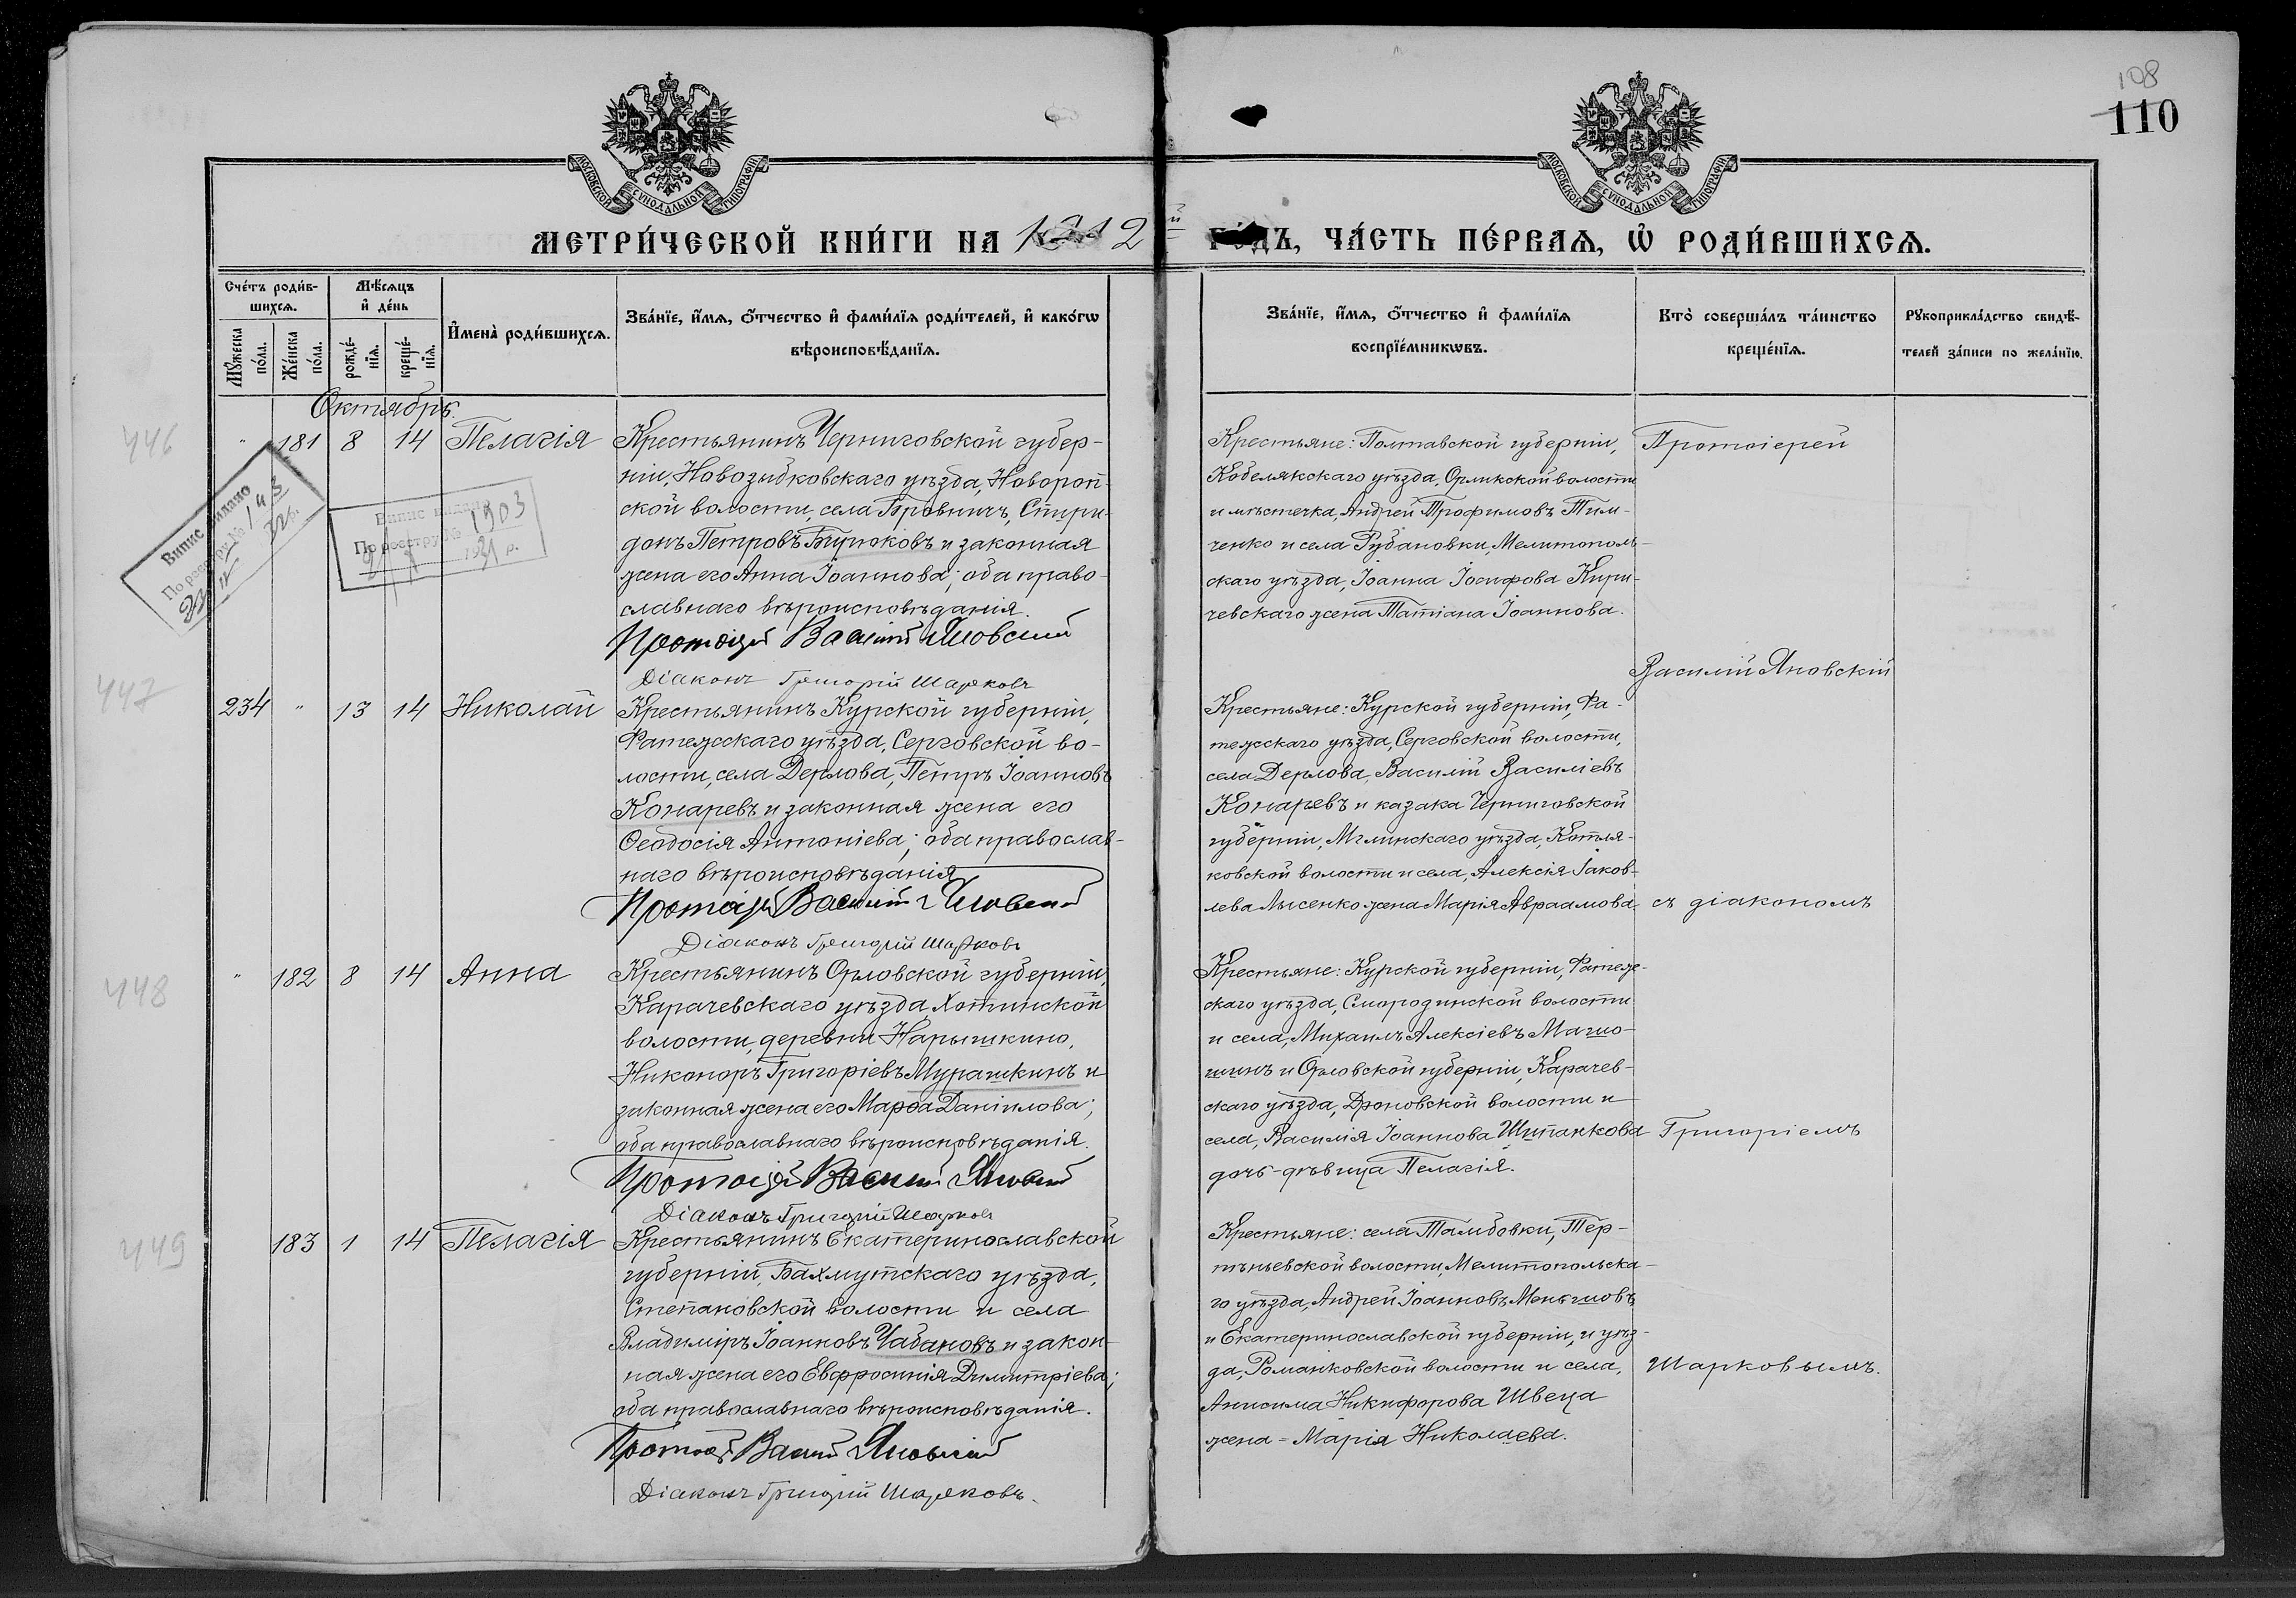 108
110
МОСКОВСКОЙ СѴНОДАЛЬНОЙ ТИПОГРАФІИ
МОСКОВСКОЙ СѴНОДАЛЬНОЙ ТИПОГРАФІИ
МЕТРИ́ЧЕСКОЙ КНИ́ГИ НА 1912 й ГО́ДЪ, ЧА́СТЬ ПЕ́РВАѦ, Ѽ РОДИ́ВШИХСѦ.
Сче́тъ роди́в-
шихсѧ.
Мꙋ́жеска по́ла.
Же́нска по́ла.
Мѣ́сѧцъ
и҆ де́нь
рожде́-
нїѧ.
креще́-
нїѧ.
И҆мена̀ роди́вшихсѧ.
Зва́нїе, и҆́мѧ, ѻ҆́тчество и҆ фами́лїѧ роди́телей, и҆ како́гѡ
вѣроисповѣ́данїѧ.
Зва́нїе, и҆́мѧ, ѻ҆́тчество и҆ фами́лїѧ
воспрїе́мникѡвъ.
Кто̀ соверша́лъ та́инство
креще́нїѧ.
Рꙋкоприкла́дство свидѣ́-
телей за́писи по жела́нїю.
Октябрь.
446
" 181 8 14 Пелагія
Крестьянинъ Черниговской губер-
ніи, Новозыбковскаго уѣзда, Новороп-
ской волости, села Бровничъ, Спири-
донъ Петровъ Бирюковъ и законная
жена его Анна Іоаннова; оба право-
славнаго вѣроисповѣданія.
Протоіерей Василій Яновскій
Діаконъ Григорій Шарковъ
Випис видано
По реєстру № 143
Випис видано
По реєстру № 1903
1931 р.
Крестьяне: Полтавской губерніи,
Кобелякскаго уѣзда, Орликской волости
и мѣстечка, Андрей Трофимовъ Тим-
ченко и села Рубановки, Мелитополь-
скаго уѣзда, Іоанна Іосифова Кири-
чевскаго жена Татіана Іоаннова.
Протоіерей
Василій Яновскій
447
234 " 13 14 Николай
Крестьянинъ Курской губерніи,
Фатежскаго уѣзда, Серговской во-
лости, села Дерлова, Петръ Іоанновъ
Конаревъ и законная жена его
Ѳеодосія Антоніева; оба православ-
наго вѣроисповѣданія
Протоіерей Василій Яновскій
Діаконъ Григорій Шарковъ
Крестьяне: Курской губерніи, Фа-
тежскаго уѣзда, Серговской волости,
села Дерлова, Василій Василіевъ
Конаревъ и казака Черниговской
губерніи, Мглинскаго уѣзда, Котля-
ковской волости и села, Алексія Іаков-
лева Лысенко жена Марія Авраамова.
съ діакономъ
448
" 182 8 14 Анна
Крестьянинъ Орловской губерніи,
Карачевскаго уѣзда, Хотинской
волости, деревни Нарышкино,
Никоноръ Григоріевъ Мурашкинъ и
законная жена его Марѳа Даніилова;
оба православнаго вѣроисповѣданія.
Протоіерей Василій Яновскій
Діаконъ Григорій Шарковъ
Крестьяне: Курской губерніи, Фатеж-
скаго уѣзда, Смородинской волости
и села, Михаилъ Алексіевъ Матю-
шинъ и Орловской губерніи, Карачев-
скаго уѣзда, Дроновской волости и
села, Василія Іоаннова Шипанкова
дочь-дѣвица Пелагія.
Григоріемъ
449
183 1 14 Пелагія
Крестьянинъ Екатеринославской
губерніи, Бахмутскаго уѣзда,
Степановской волости и села
Владиміръ Іоанновъ Чабановъ и закон-
ная жена его Евфросинія Димитріева;
оба православнаго вѣроисповѣданія.
Протоіерей Василій Яновскій
Діаконъ Григорій Шарковъ.
Крестьяне: села Тамбовки, Тер-
пѣньевской волости, Мелитопольска-
го уѣзда, Андрей Іоанновъ
и Екатеринославской губерніи, и уѣз-
да, Романковской волости и села,
Анисима Никифорова Швеца
жена = Марія Николаева.
Шарковымъ.